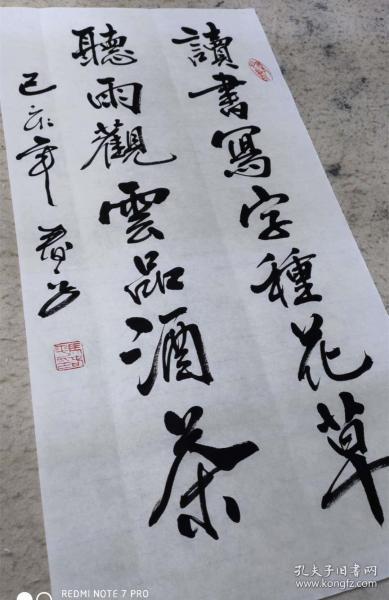 讀書寫字種花草
聽雨觀雲品酒茶
己亥年
REDMI NOTE 7 PRO
孔夫子旧书网
www.kongfz.com